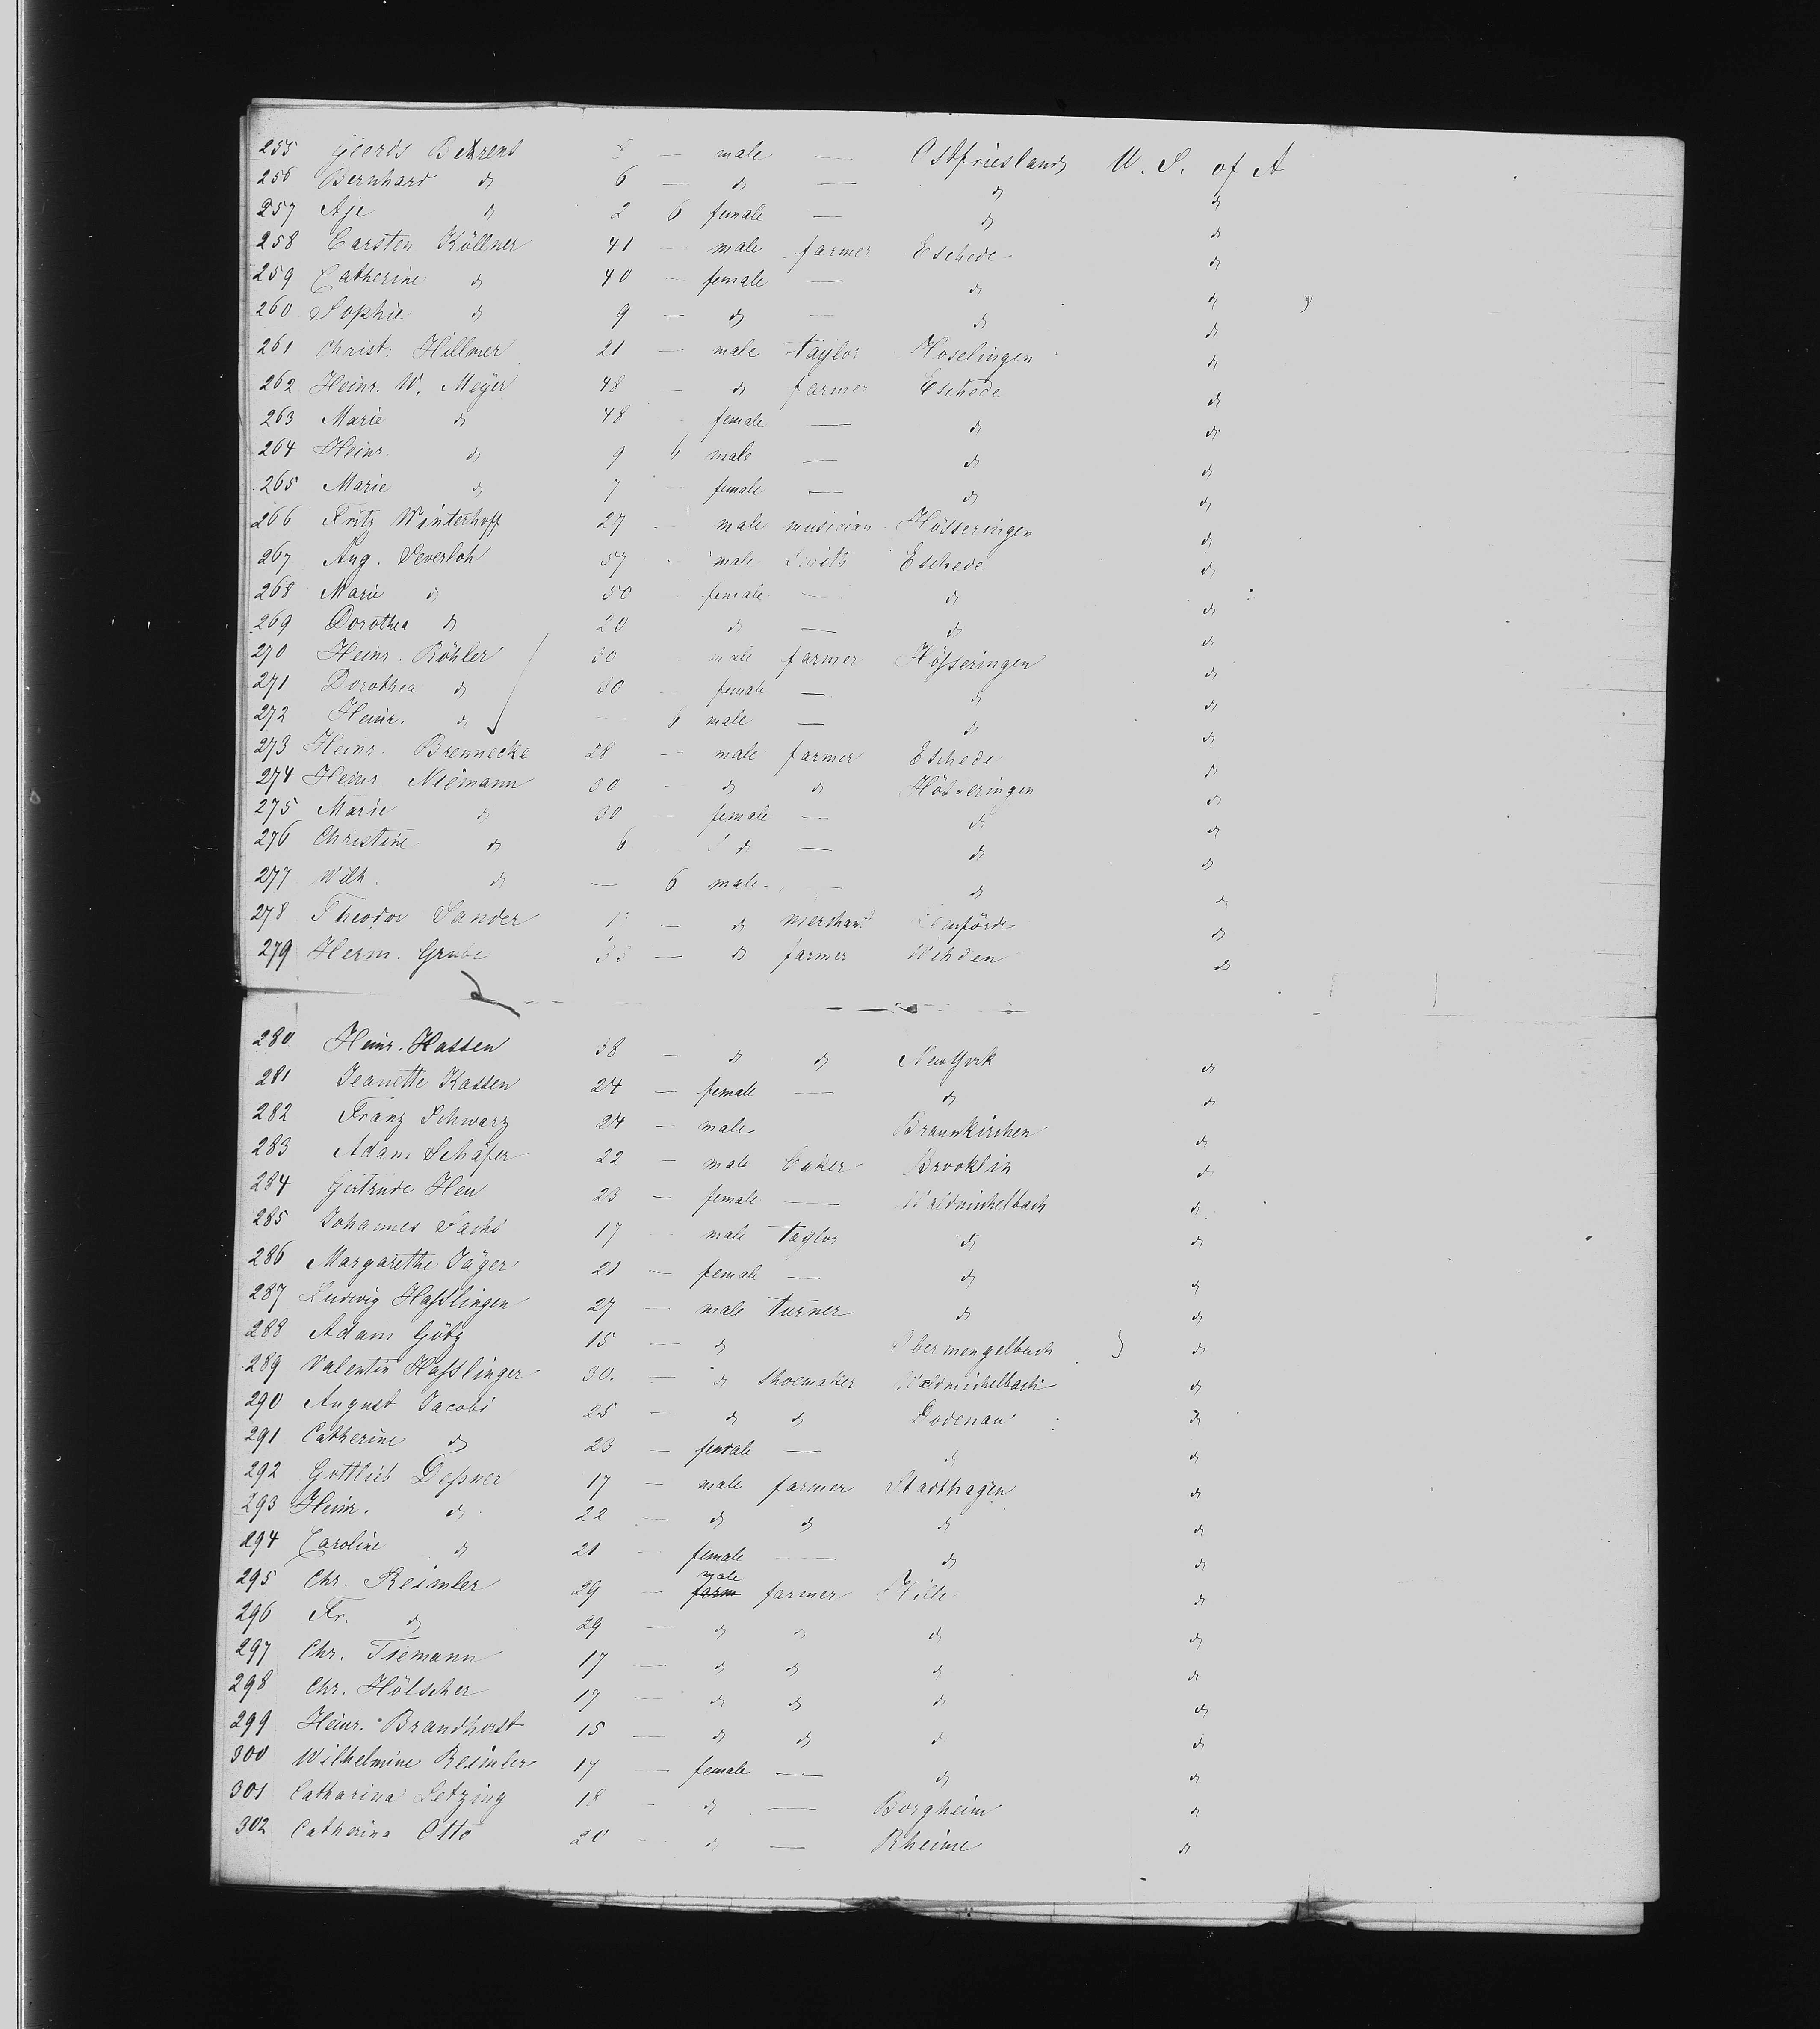 255 Geerds Behrens 8 — male — Ostfriesland U. S. of A
256 Bernhard do 6 — do — do do
257 Aje do 2 6 female — do do
258 Carsten Köllner 41 male farmer Eschede do
259 Catherine do 40 — female — do do
260 Sophie do 9 — do — do do
261 Christ. Hillmer 21 — male taylor Hoselingen do
262 Heinr. W. Meyer 48 — do farmer Eschede do
263 Marie do 48 female — do do
264 Heinr. do 9 6 male — do do
265 Marie do 7 female — do do
266 Fritz Winterhoff 27 - male musician Hösseringen do
267 Aug. Severloh 57 - male Smith Eschede do
268 Marie do 50 female — do do
269 Dorothea do 20 do — do do
270 Heinr. Röhler 30 male farmer Hösseringen do
271 Dorothea do 30 - female — do do
272 Heinr. do — 6 male — do do
273 Heinr. Brennecke 28 — male farmer Eschede do
274 Heinr. Niemann 30 - do do Hösseringen do
275 Marie do 30 — female — do do
276 Christine do 6 do — do do
277 Wilh. do — 6 male — do do
278 Theodor Sander — do merchant do
279 Herm. Grube 33 — do farmer Wehden do
280 Heinr. Kassen 38 — do do New York do
281 Jeanette Kassen 24 — female — do do
282 Franz Schwarz 24 — male Braunkirchen do
283 Adam Schäfer 22 — male baker Brooklin do
284 Gertrude Heu 23 — female — Waldmichelbach do
285 Johannes Sachs 17 male taylor do do
286 Margarethe Jäger 21 — female — do do
287 Ludwig Hasslingen 27 — male turner do do
288 Adam Götz 15 — do Obermengelbach do
289 Valentin Hasslinger 30. — do shoemaker Waldmichelbach do
290 August Jacobi 25 — do do Dodenau do
291 Catherine do 23 — female — do do
292 Gottlieb Dessner 17 — male farmer Stadthagen do
293 Heinr. do 22 — do do do do
294 Caroline do 21 — female — do do
295 Chr. Reimler 29 — farm male farmer Hille do
296 Fr. do 29 — do do do do
297 Chr. Tiemann 17 — do do do do
298 Chr. Hölscher 17 — do do do do
299 Heinr. Brandhorst 15 — do do do do
300 Wilhelmine Reimler 17 — female — do do
301 Catharina Letzing 18 — do — Borgheim do
302 Catherina Otto 20 — do — Rheime do